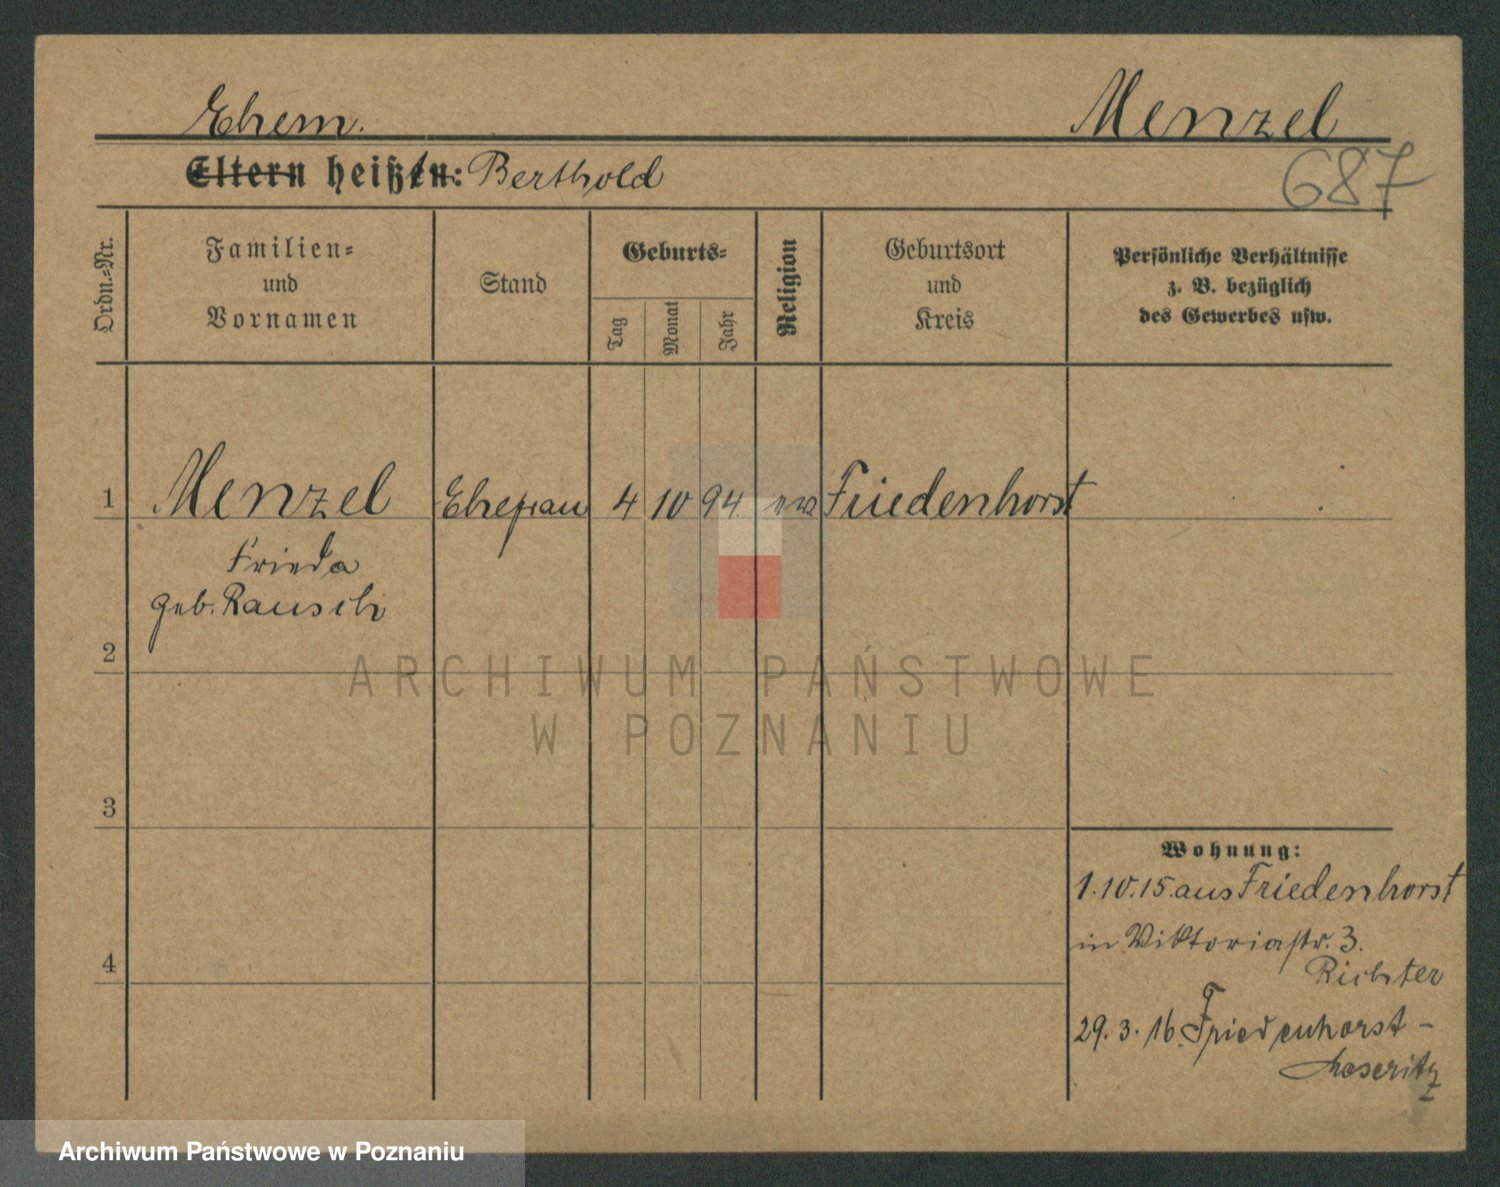 Ehem. Menzel
Eltern heißt: Berthold
687
Ordn.=Nr.
Familien=
und
Vornamen
Stand
Geburts=
Tag
Monat
Jahr
Religion
Geburtsort
und
Kreis
Persönliche Verhältnisse
z. B. bezüglich
des Gewerbes usw.
1 Menzel Ehefrau 4 10 94 ev Friedenhorst
Frieda
geb. Rausch
2
3
4
Wohnung:
1.10.15. aus Friedenhorst
in Viktoriastr. 3.
Richter
29. 3. 16. Friedenhorst –
Meseritz
ARCHIWUM PAŃSTWOWE
W POZNANIU
Archiwum Państwowe w Poznaniu